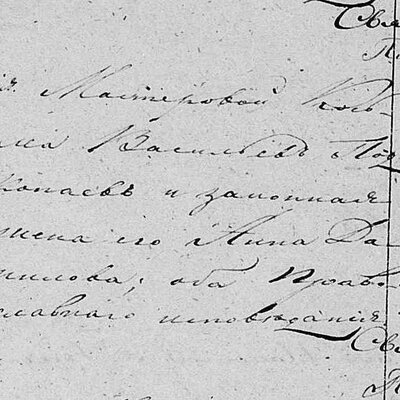 Свя
П
ія Мастеровой Козь-
ма Васильевъ Под
копаевъ и законная
жена его Анна Да
нилова; оба Право
славнаго исповѣданія.
Свя
П